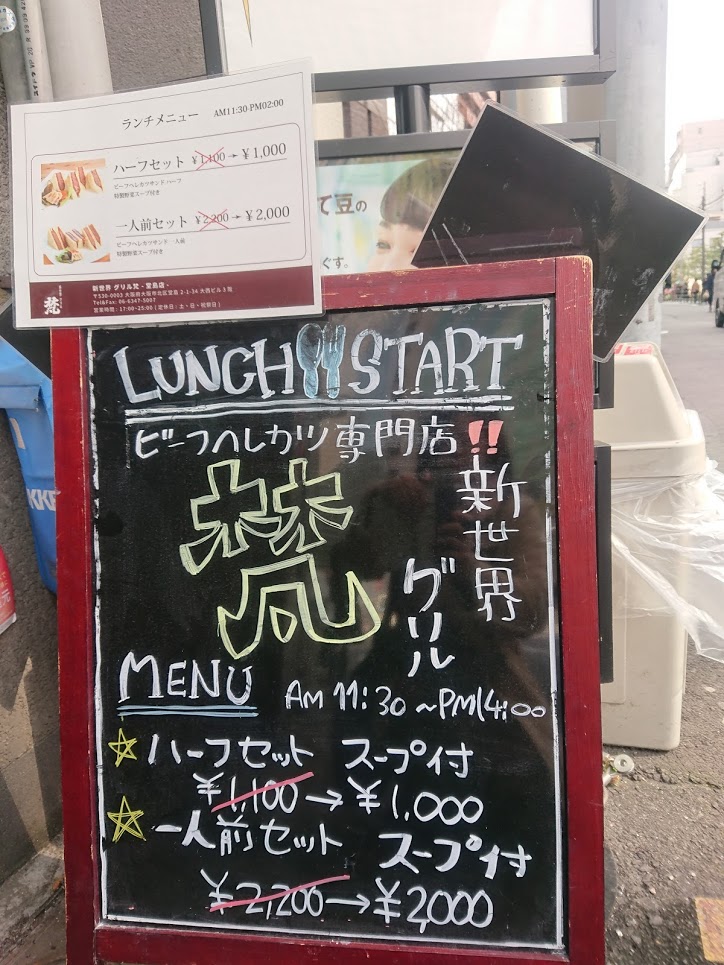 ランチメニュー AM11:30-PM02:00
ハーフセット ¥1,100→¥1,000
ビーフヘレカツサンド ハーフ
特製野菜スープ付き
一人前セット ¥2,200→¥2,000
ビーフヘレカツサンド 一人前
特製野菜スープ付き
梵
新世界 グリル梵 - 堂島店 -
〒530-0003 大阪府大阪市北区堂島 2-1-34 大西ビル3階
Tel&Fax: 06-6347-5007
営業時間: 17:00~23:00 (定休日: 土・日・祝祭日)
て豆の
ぐす。
LUNCH START
ビーフヘレカツ専門店!!
新世界
グリル
梵
MENU AM 11:30 ~PM14:00
☆ハーフセット スープ付
¥1,100→¥1,000
☆一人前セット スープ付
¥2,200→¥2,000